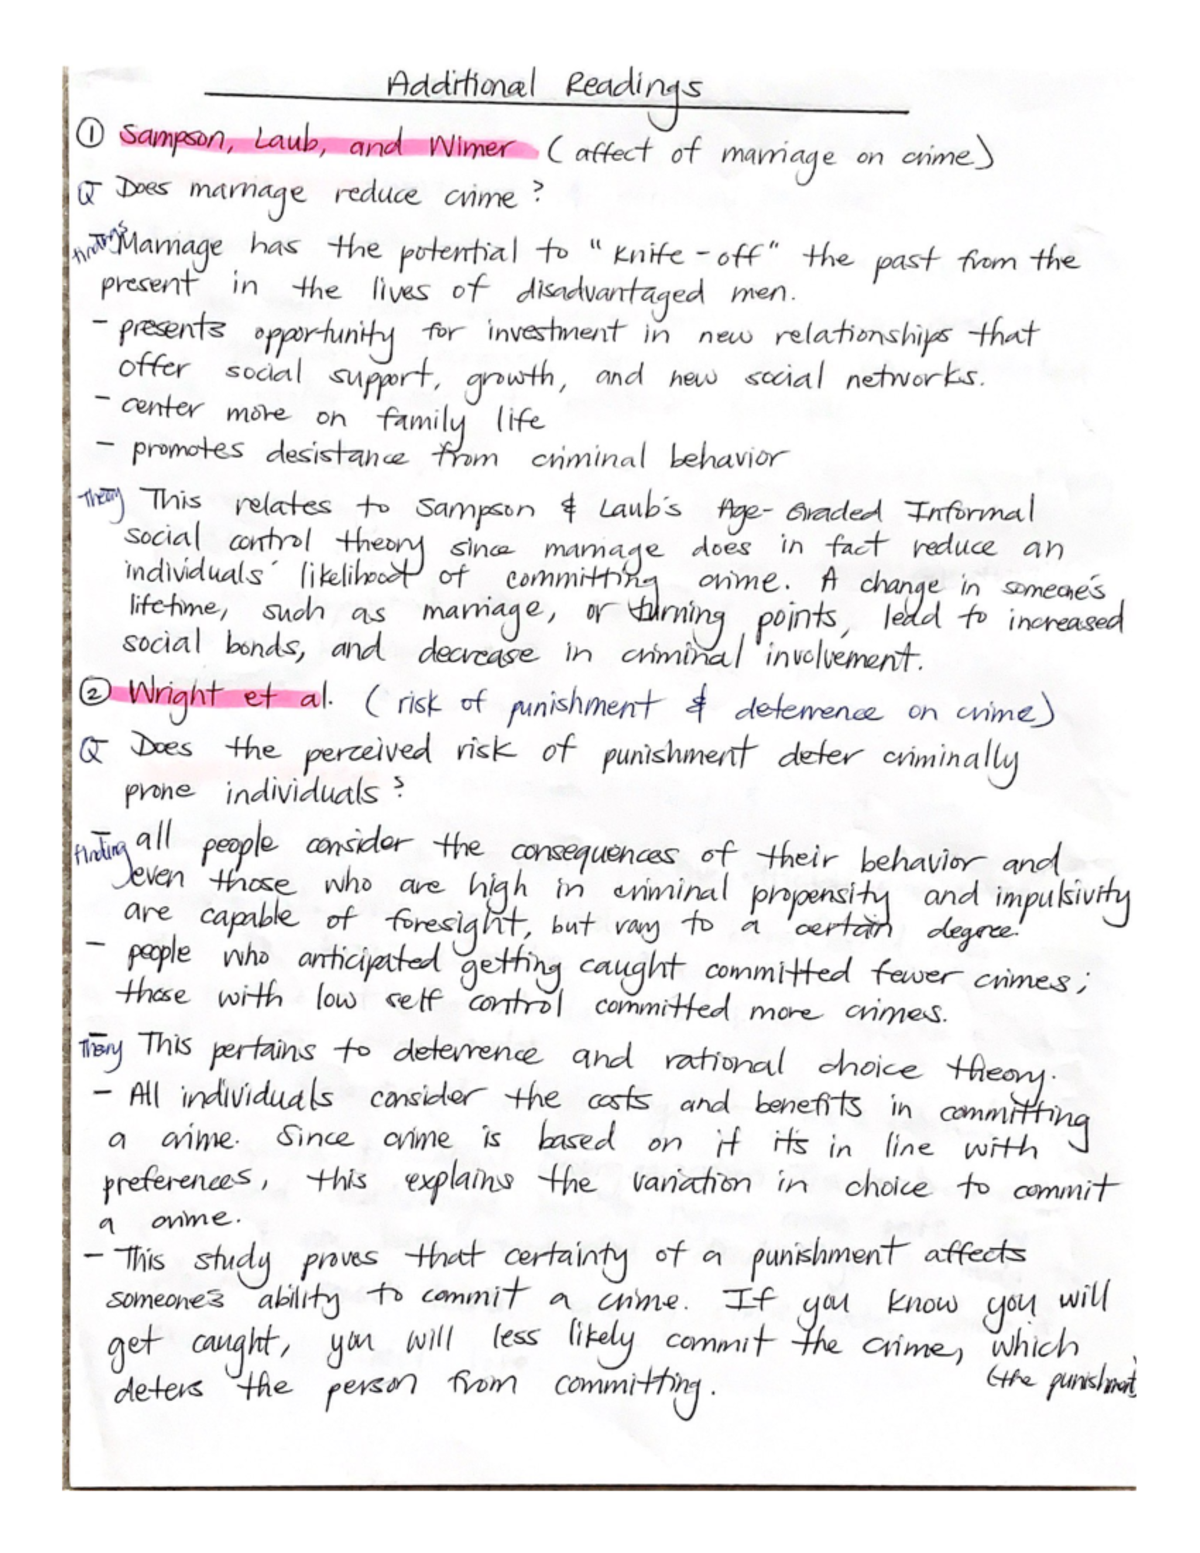 Additional Readings
① Sampson, Laub, and Wimer (affect of marriage on crime)
Q Does marriage reduce crime?
findings Marriage has the potential to "knife-off" the past from the
present in the lives of disadvantaged men.
- presents opportunity for investment in new relationships that
offer social support, growth, and new social networks.
- center more on family life
- promotes desistance from criminal behavior
Theory This relates to Sampson & Laub's Age-Graded Informal
social control theory since marriage does in fact reduce an
individuals' likelihood of committing crime. A change in someone's
lifetime, such as marriage, or turning points, lead to increased
social bonds, and decrease in criminal involvement.
② Wright et al. (risk of punishment & deterrence on crime)
Q Does the perceived risk of punishment deter criminally
prone individuals?
finding all people consider the consequences of their behavior and
even those who are high in criminal propensity and impulsivity
are capable of foresight, but vary to a certain degree.
- people who anticipated getting caught committed fewer crimes;
those with low self control committed more crimes.
Theory This pertains to deterrence and rational choice theory.
- All individuals consider the costs and benefits in committing
a crime. Since crime is based on if it's in line with
preferences, this explains the variation in choice to commit
a crime.
- This study proves that certainty of a punishment affects
someone's ability to commit a crime. If you know you will
get caught, you will less likely commit the crime, which
(the punishment)
deters the person from committing.